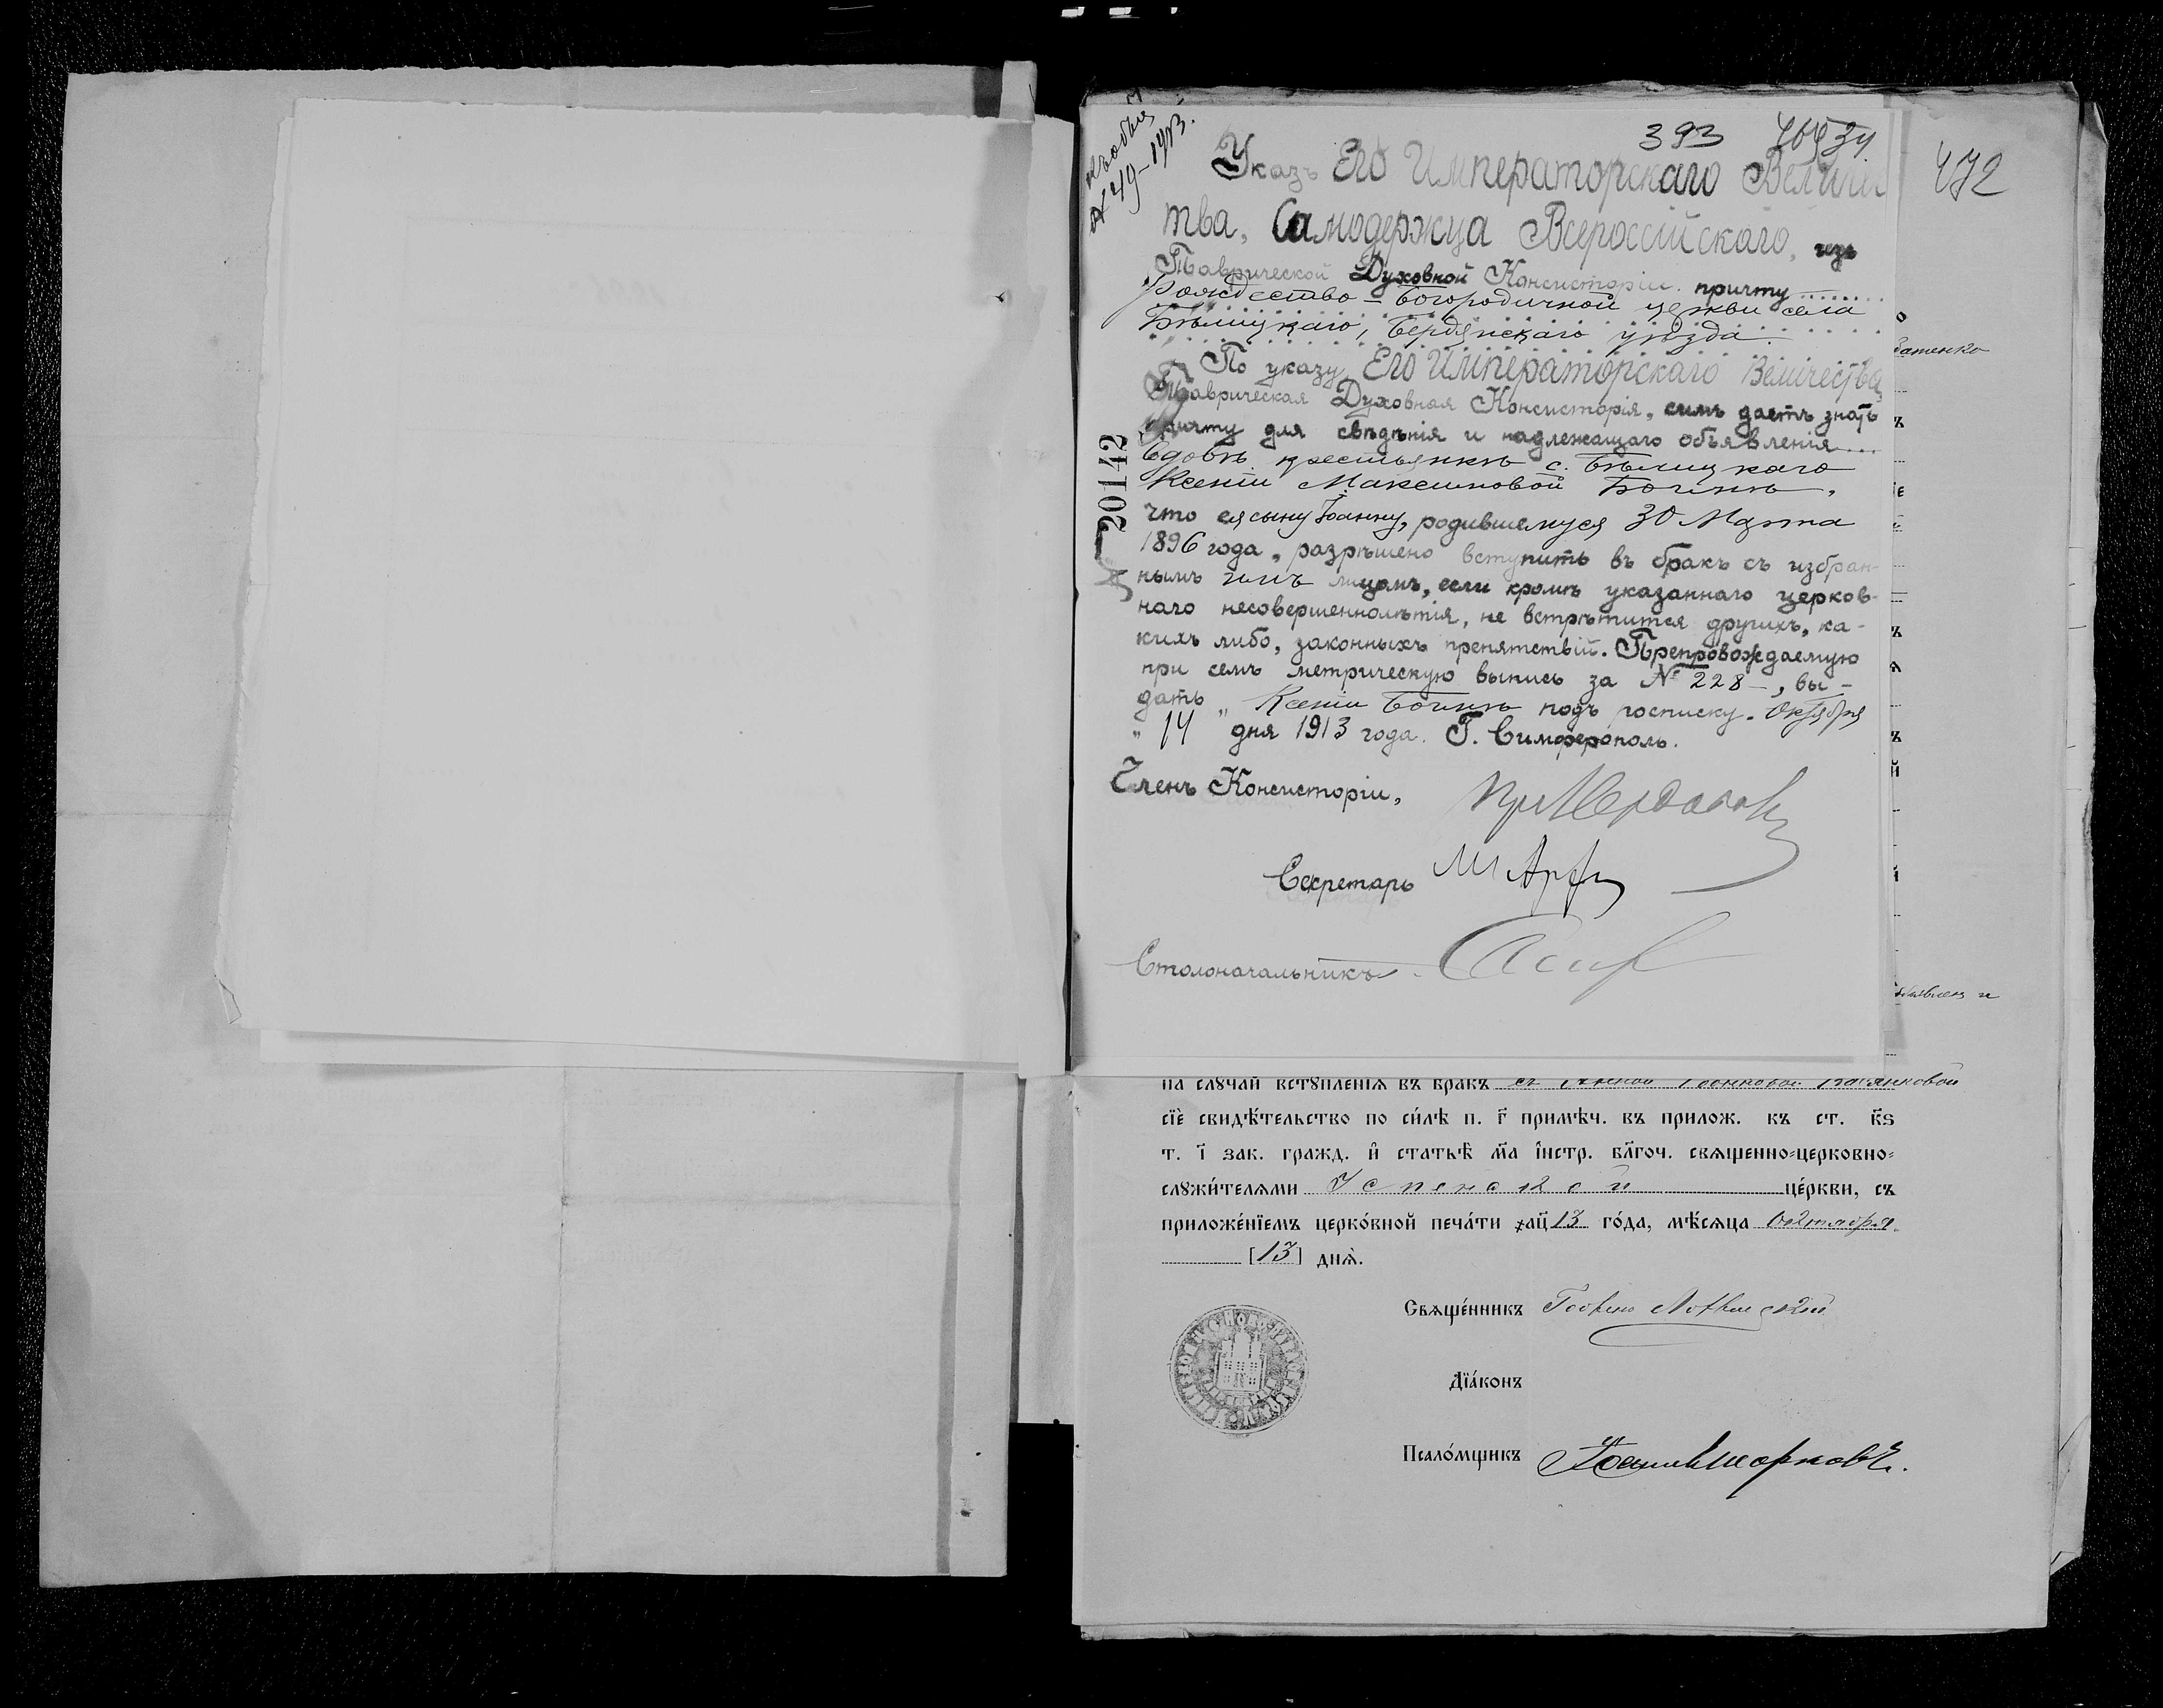 393
472
Указъ Его Императорскаго Величес
тва, Самодержца Всероссійскаго, изъ
Таврической Духовной Консисторіи причту
Рождество-Богородичной церкви села
Бѣлицкаго, Бердянскаго уѣзда.
По указу Его Императорскаго Величества
Таврическая Духовная Консисторія, симъ даетъ знать
причту для свѣдѣнія и надлежащаго объявленія
вдовѣ крестьянкѣ с. Бѣлицкаго
Ксеніи Максимовой Бочкѣ,
что ея сыну Іоанну, родившемуся 30 Марта
1896 года, разрѣшено вступить въ бракъ съ избран-
нымъ имъ лицомъ, если кромѣ указаннаго церков-
наго несовершеннолѣтія, не встрѣтится другихъ, ка-
кихъ либо, законныхъ препятствій. Препровождаемую
при семъ метрическую выпись за № 228, вы-
дать " Ксеніи Бочкѣ подъ росписку. Октября
" 14 " дня 1913 года. Г. Симферополь.
№ 20142
Членъ Консисторіи,
Секретарь
Столоначальникъ
на слꙋчай встꙋпленїѧ въ бракъ съ
сїѐ свидѣ́тельство по си́лѣ п. г҃ примѣч. въ прилож. къ ст. к҃ѕ
т. і҃ зак. гражд. и҆ статьѣ̀ м҃а і҆нстр. бл҃гоч. свѧщенно-церковно-
слꙋжи́телѧми Успенской це́ркви, съ
приложе́нїемъ церко́вной печа́ти ҂ац҃13 го́да, мѣ́сѧца Октября
[13] днѧ̀.
Свѧще́нникъ
Дїа́конъ
Псало́мщикъ